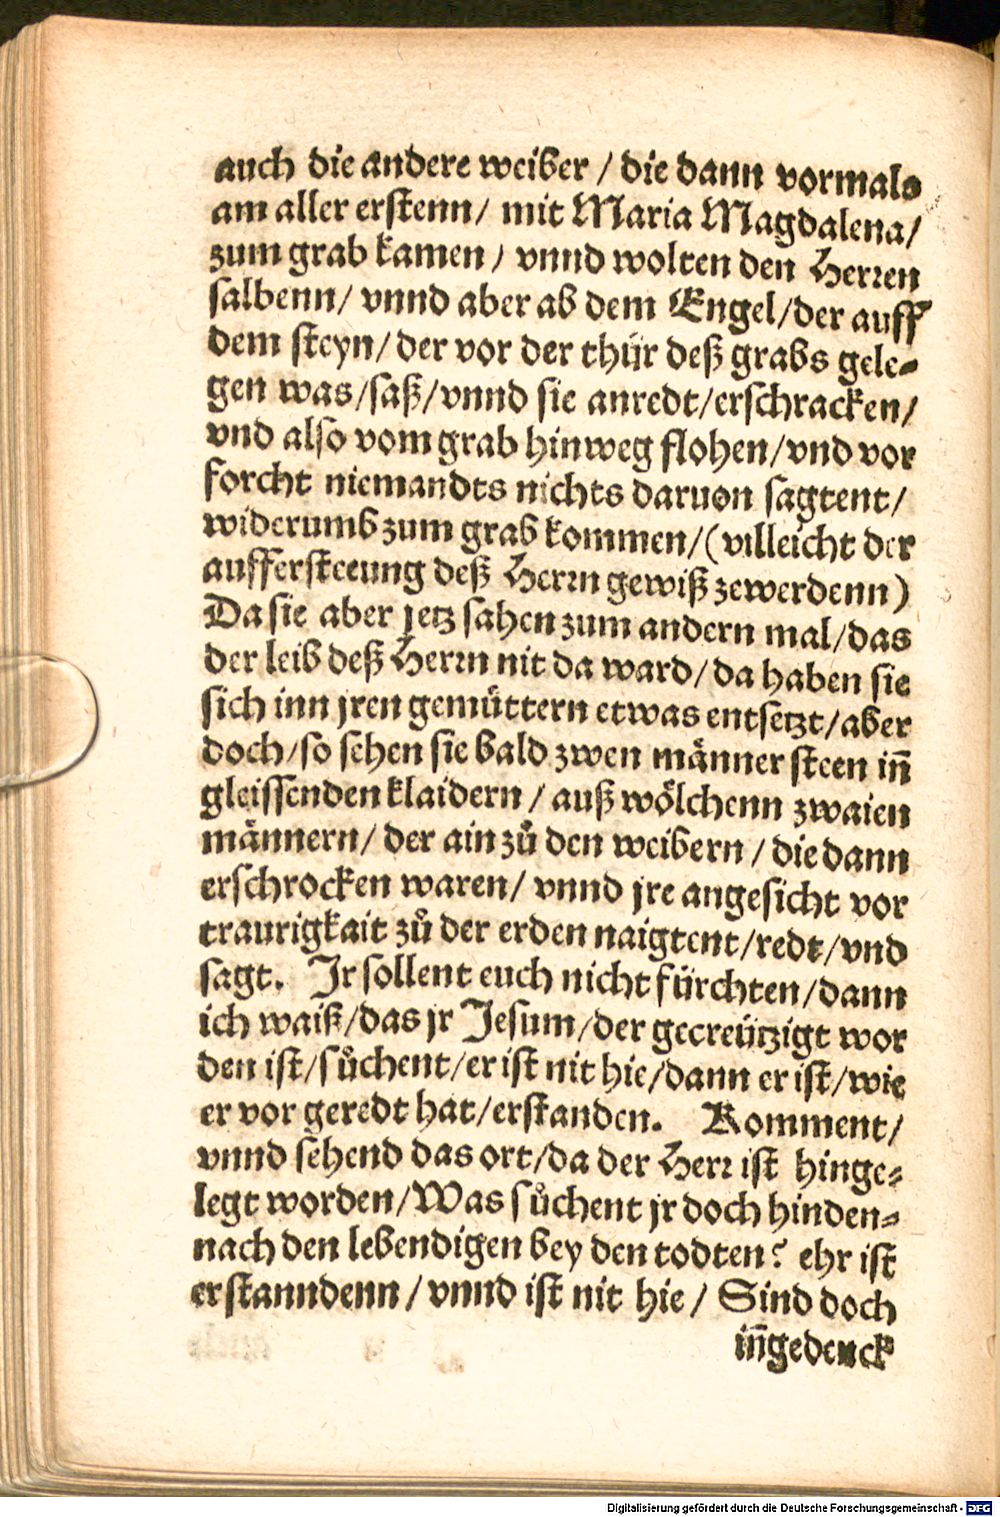 auch die andere weiber / die dann vormals
am aller erstenn / mit Maria Magdalena /
zum grab kamen / vnnd wolten den Herren
salbenn / vnnd aber ab dem Engel / der auff
dem steyn / der vor der thür deß grabs gele-
gen was / saß / vnnd sie anredt / erschracken /
vnd also vom grab hinweg flohen / vnd vor
forcht niemandts nichts daruon sagtent /
widerumb zum grab kommen / (villeicht der
aufferstceung deß Herrn gewiß zewerdenn)
Da sie aber jetz sahen zum andern mal / das
der leib deß Herrn nit da ward / da haben sie
sich inn jren gemüttern etwas entsetzt / aber
doch / so sehen sie bald zwen männer steen iñ
gleissenden klaidern / auß wölchenn zwaien
männern / der ain zů den weibern / die dann
erschrocken waren / vnnd jre angesicht vor
traurigkait zů der erden naigtent / redt / vnd
sagt. Ir sollent euch nicht fürchten / dann
ich waiß / das jr Jesum / der gecreützigt wor
den ist / sůchent / er ist nit hie / dann er ist / wie
er vor geredt hat / erstanden. Komment /
vnnd sehend das ort / da der Herr ist hinge-
legt worden / Was sůchent jr doch hinden-
nach den lebendigen bey den todten? ehr ist
erstanndenn / vnnd ist nit hie / Sind doch
iñgedenck
Digitalisierung gefördert durch die Deutsche Forschungsgemeinschaft - DFG